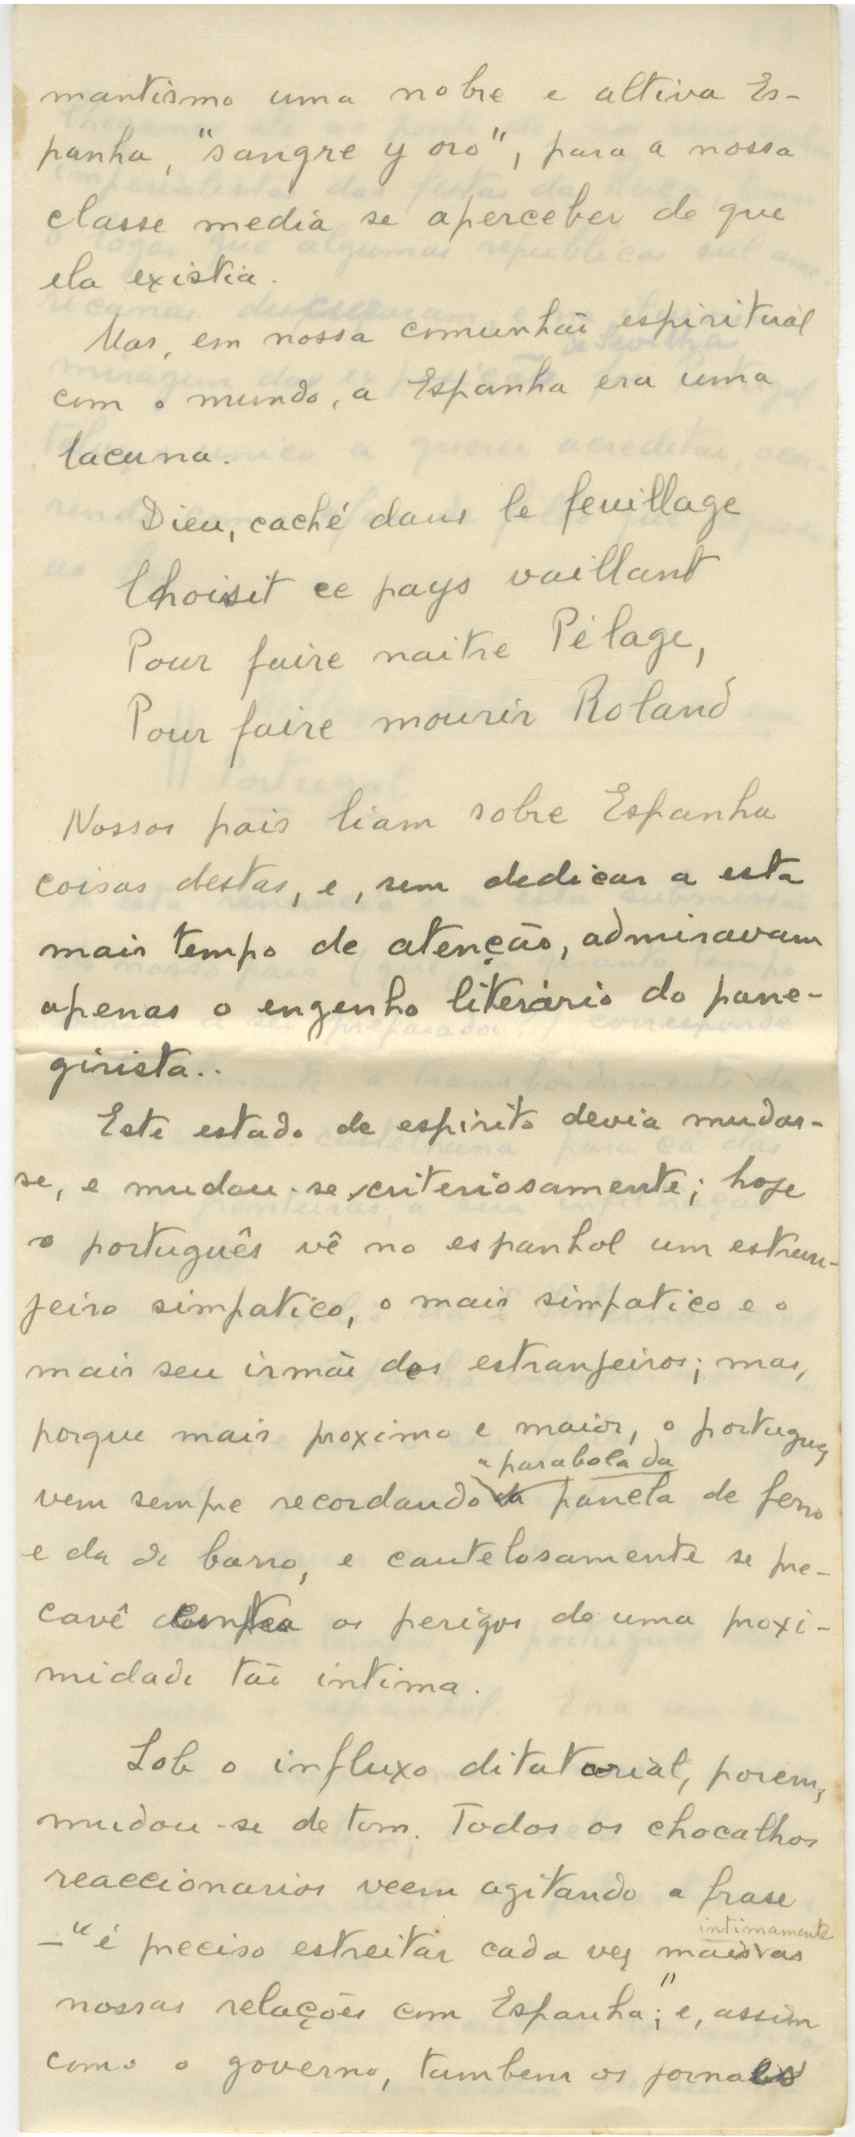 mantismo uma nobre e altiva Es-
panha, "sangre y oro", para a nossa
classe media se aperceber de que
ela existia.
Mas, em nossa comunhão espiritual
com o mundo, a Espanha era uma
lacuna.
Dieu, caché dans le feuillage
Choisit ce pays vaillant
Pour faire naitre Pélage,
Pour faire mourir Roland
Nossos pais liam sobre Espanha
coisas destas, e, sem dedicar a esta
mais tempo de atenção, admiravam
apenas o engenho literário do pane-
girista..
Este estado de espirito devia mudar-
se, e mudou-se criteriosamente; hoje
o português vê no espanhol um estran-
jeiro simpatico, o mais simpatico e o
mais seu irmão dos estranjeiros; mas,
porque mais proximo e maior, o portuguez
a parabola da
vem sempre recordando panela de ferro
e da de barro, e cautelosamente se pre-
cavê contra os perigos de uma proxi-
midade tão intima.
Sob o influxo ditatorial, porem,
mudou-se de tom. Todos os chocalhos
reaccionarios veem agitando a frase
intimamente
—"é preciso estreitar cada vez mais as
nossas relações com Espanha"; e, assim
como o governo, tambem os jornaes